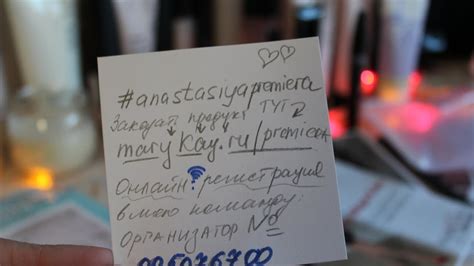 #anastasiyapremiera
Заказать продукт ТУТ
mary kay.ru/premiera
Онлайн регистрация
в мою команду:
Организатор №